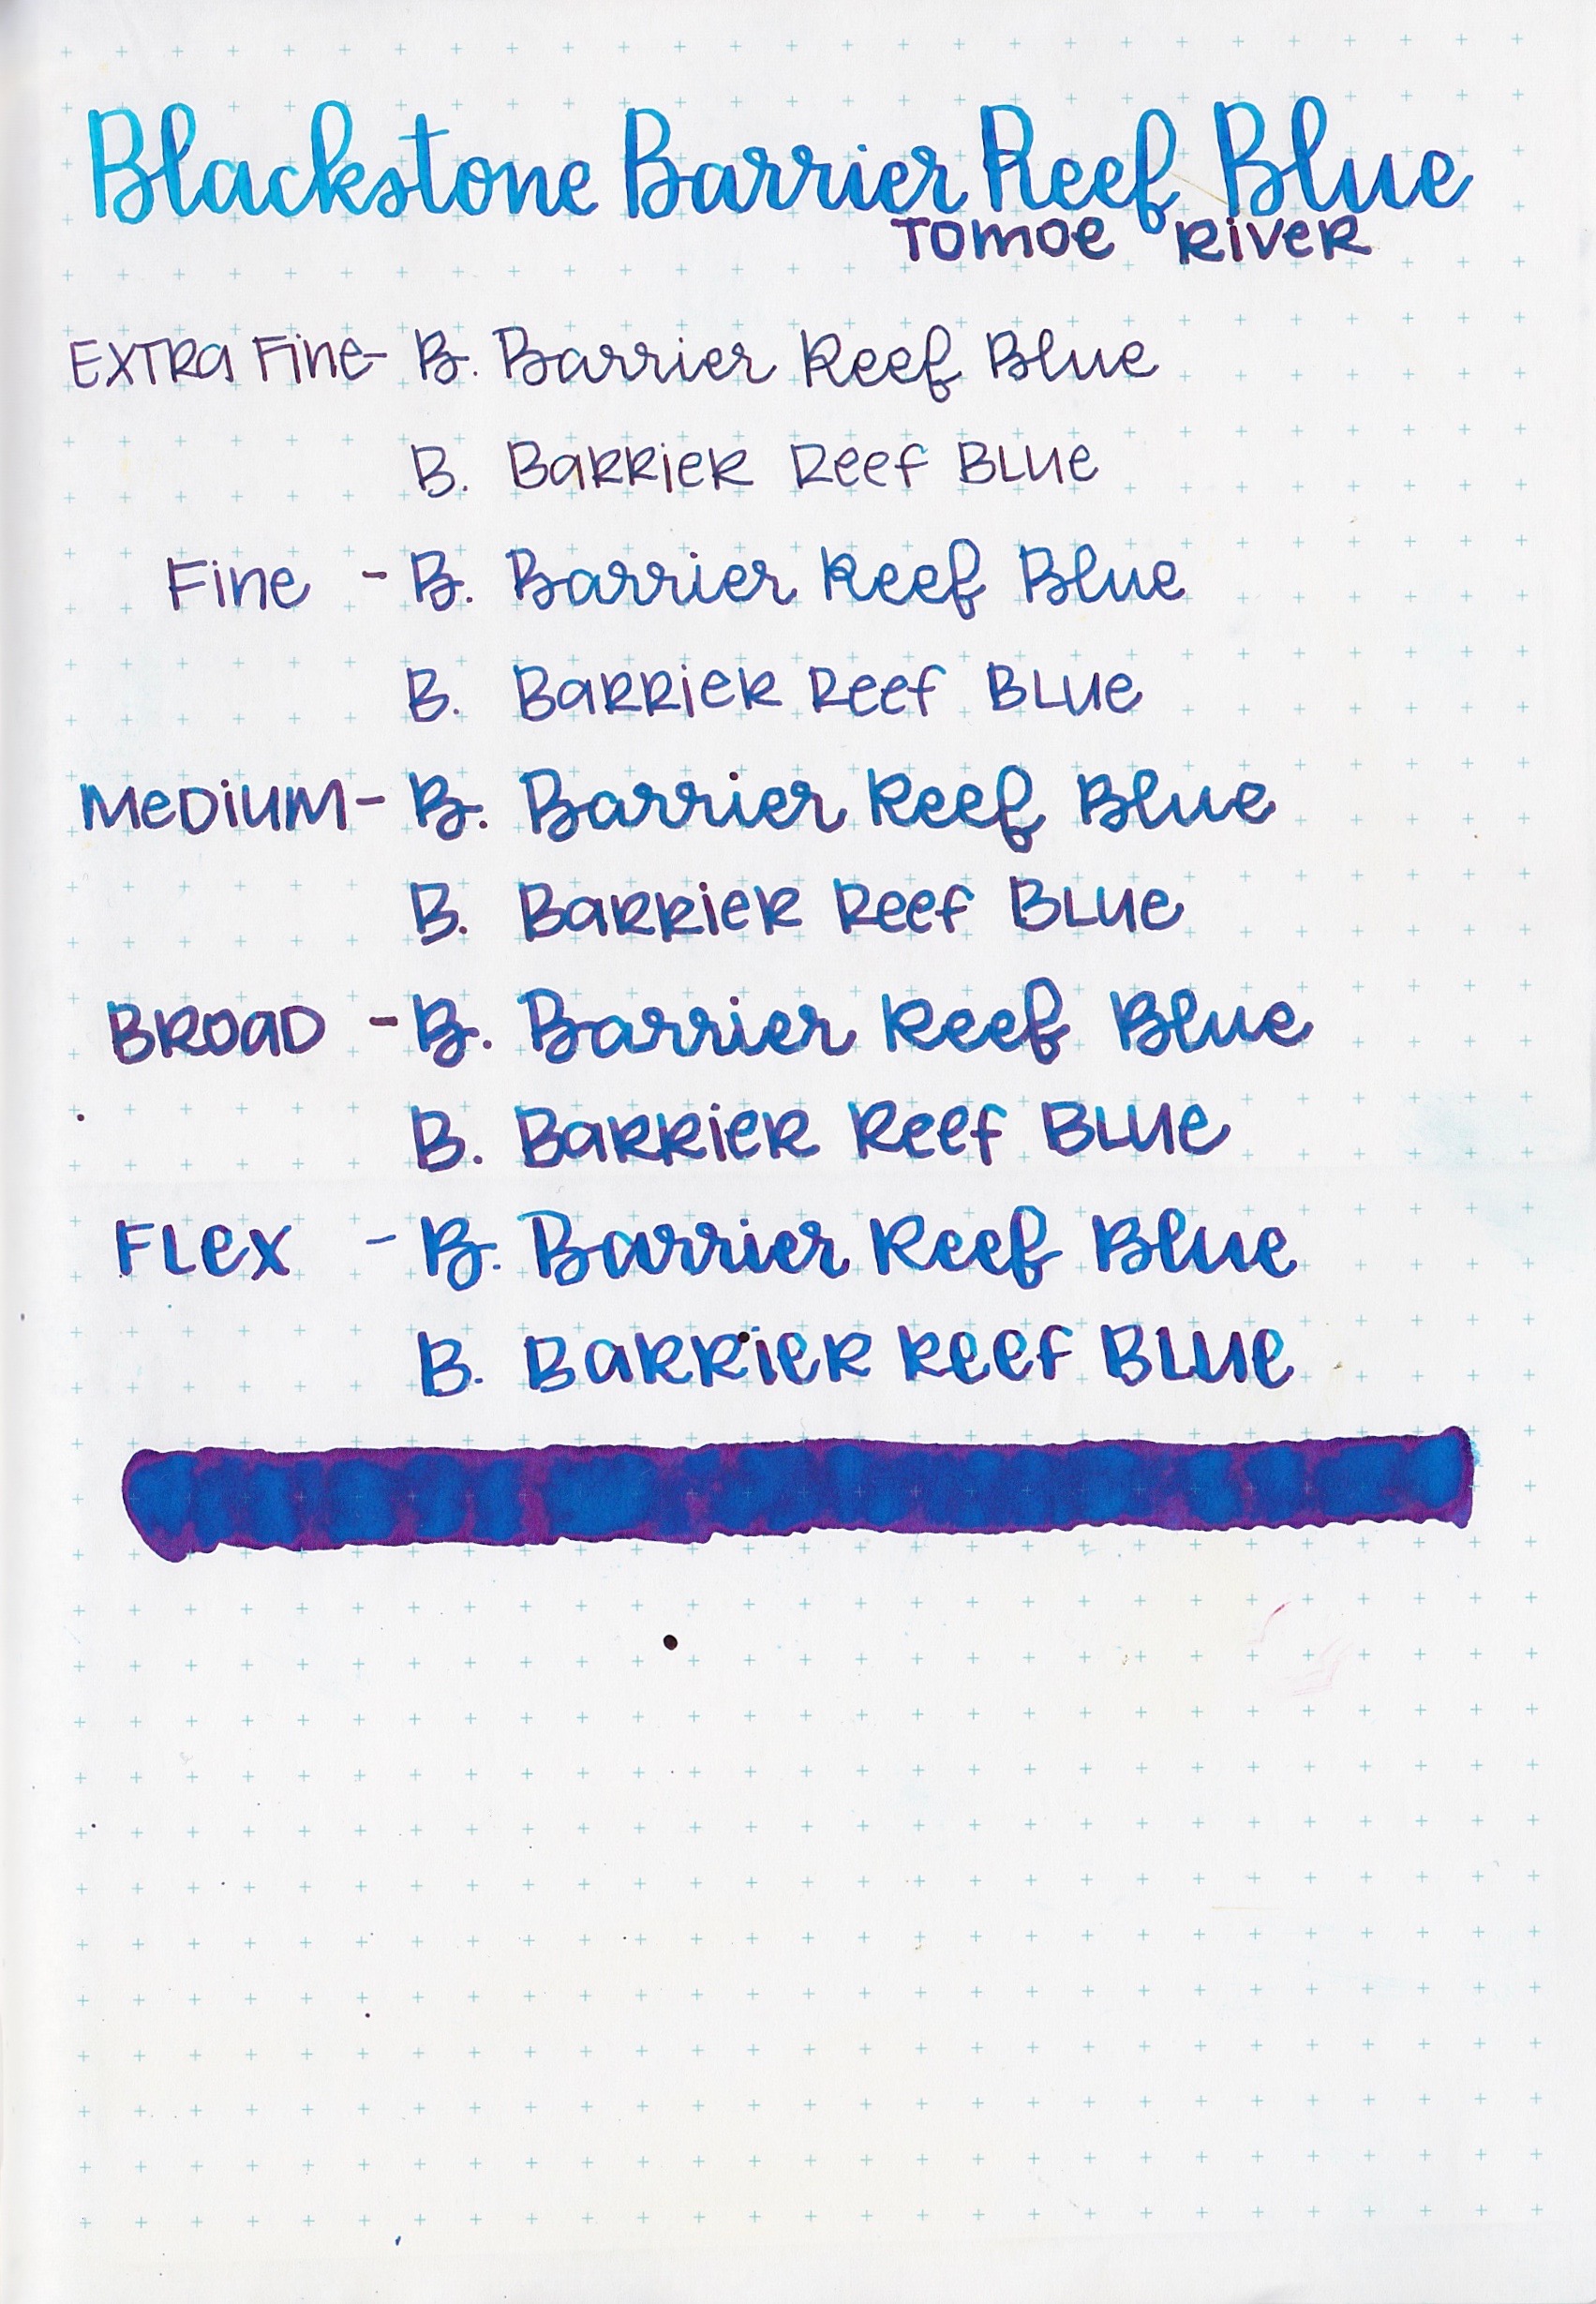 Blackstone Barrier Reef Blue
Tomoe River
Extra Fine- B. Barrier Reef Blue
B. Barrier Reef Blue
Fine - B. Barrier Reef Blue
B. Barrier Reef Blue
Medium- B. Barrier Reef Blue
B. Barrier Reef Blue
Broad - B. Barrier Reef Blue
B. Barrier Reef Blue
Flex - B. Barrier Reef Blue
B. Barrier Reef Blue